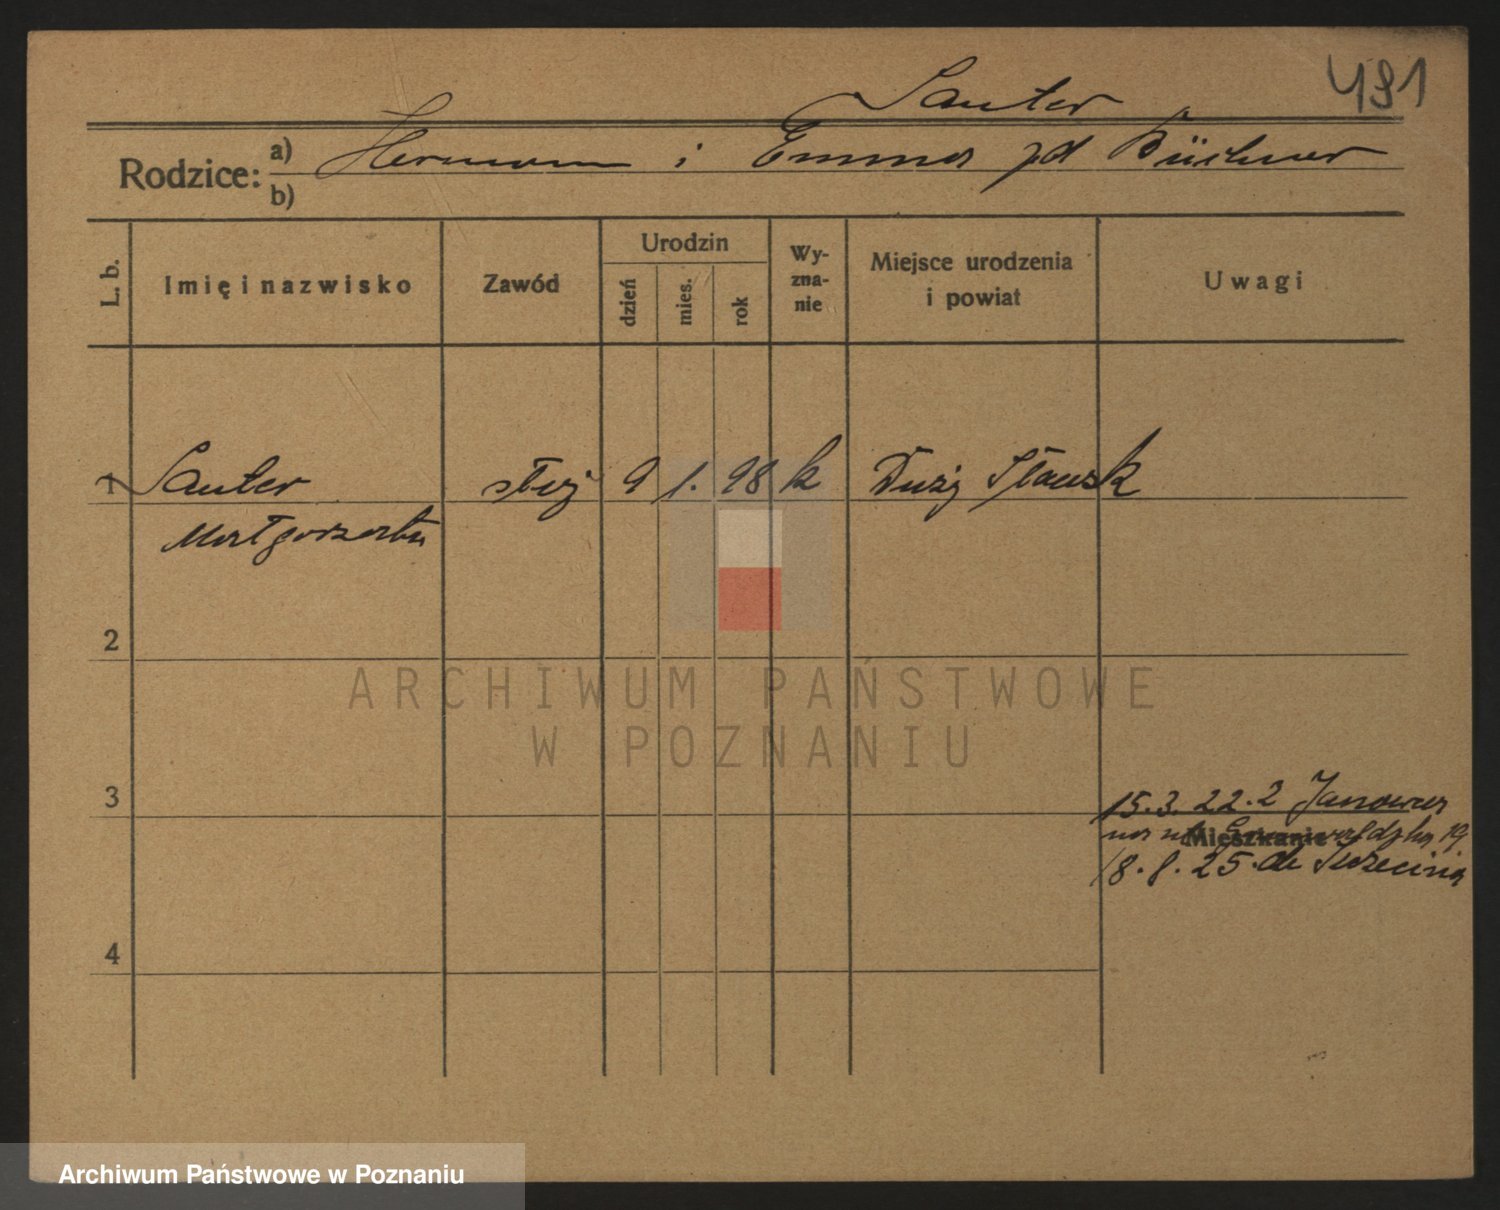 491
Sauter
Rodzice: a) Herman i Emma zd Büchner
b)
L. b. Imię i nazwisko Zawód Urodzin dzień mies. rok Wyznanie Miejsce urodzenia i powiat Uwagi
1 Sauter służ 9 1. 98 k Duży
Małgorzata
2
ARCHIWUM PAŃSTWOWE
W POZNANIU
3
15.3.22.2 Janowca
Mieszkanie
na ul. Grunwaldzka 19
18.8.25. do Szczecina
4
Archiwum Państwowe w Poznaniu